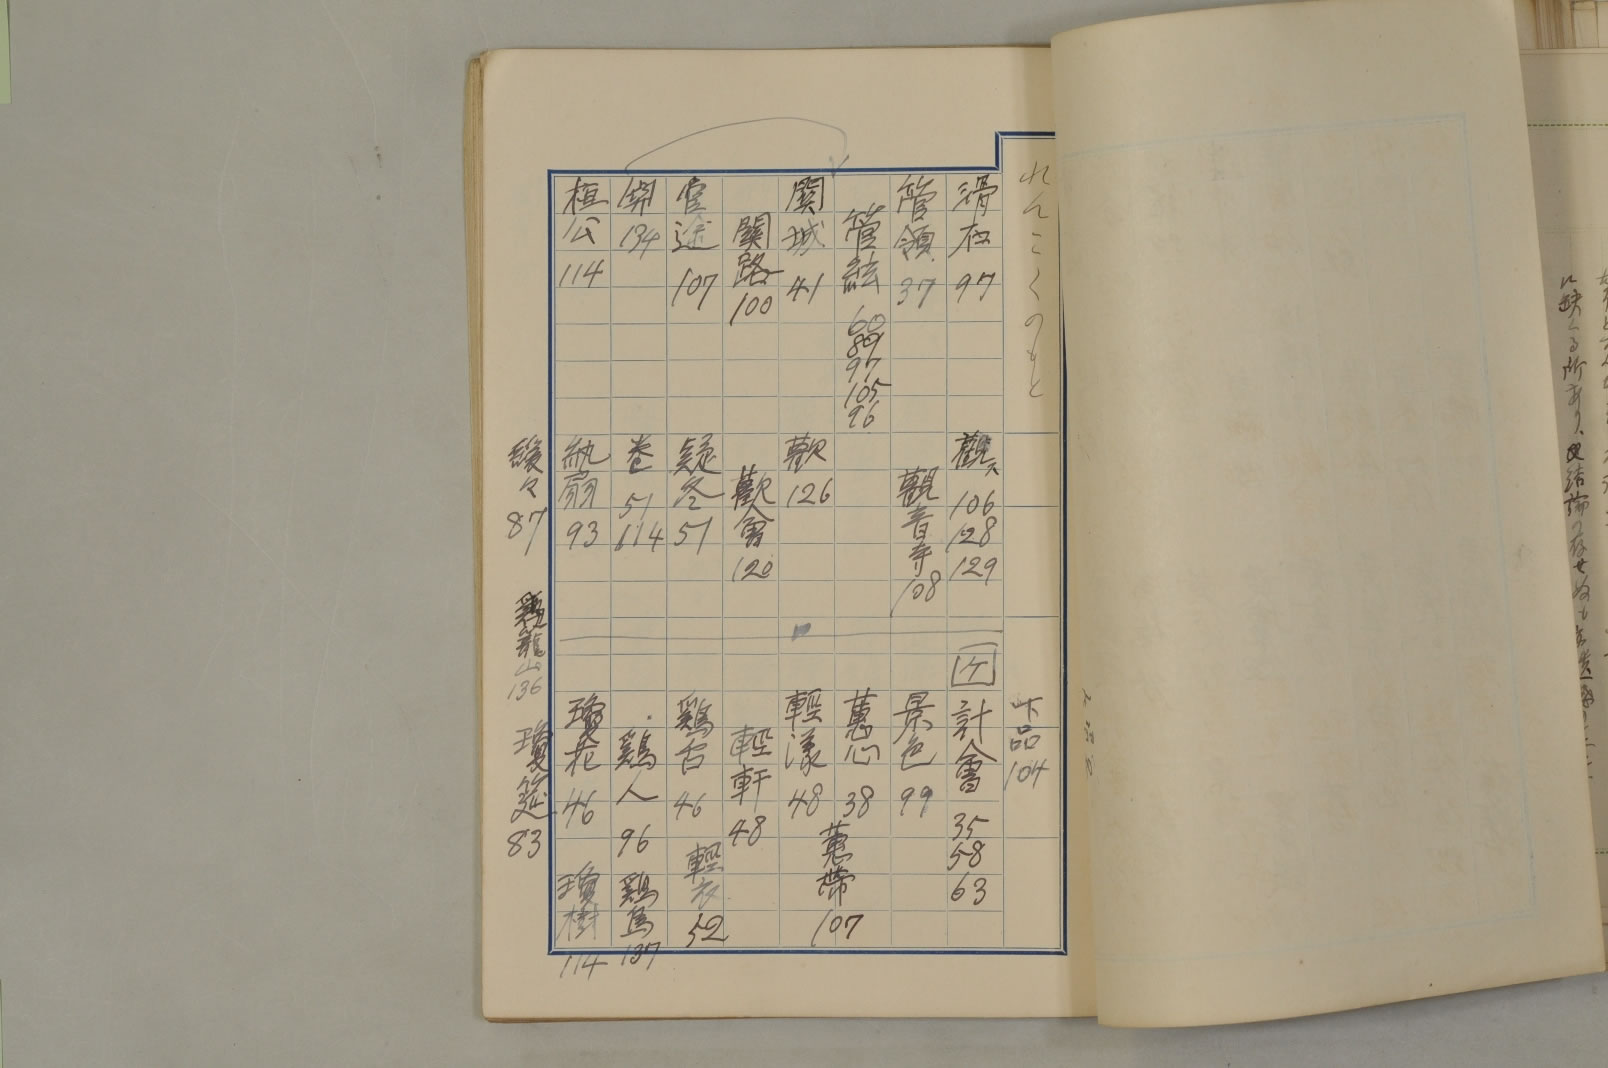 れんこくのもと
滑存 97
管領 37
管絃 60 89 97 105 96
關城 41
關路 100
官途 107
関 134
桓公 114
觀天 106 128 129
觀音寺 108
歡 126
歡會 120
疑冬 51
巻 51 114
紈扇 93
緩々 87
ケ
下品 104
計會 35 58 63
景色 99
蕙心 38
蕙帶 107
輕漾 48
輕軒 48
鷄舌 46
輕衣 52
鷄人 96
鷄烏 137
瓊花 46
瓊樹 114
鷄籠山 136
瓊筵 83